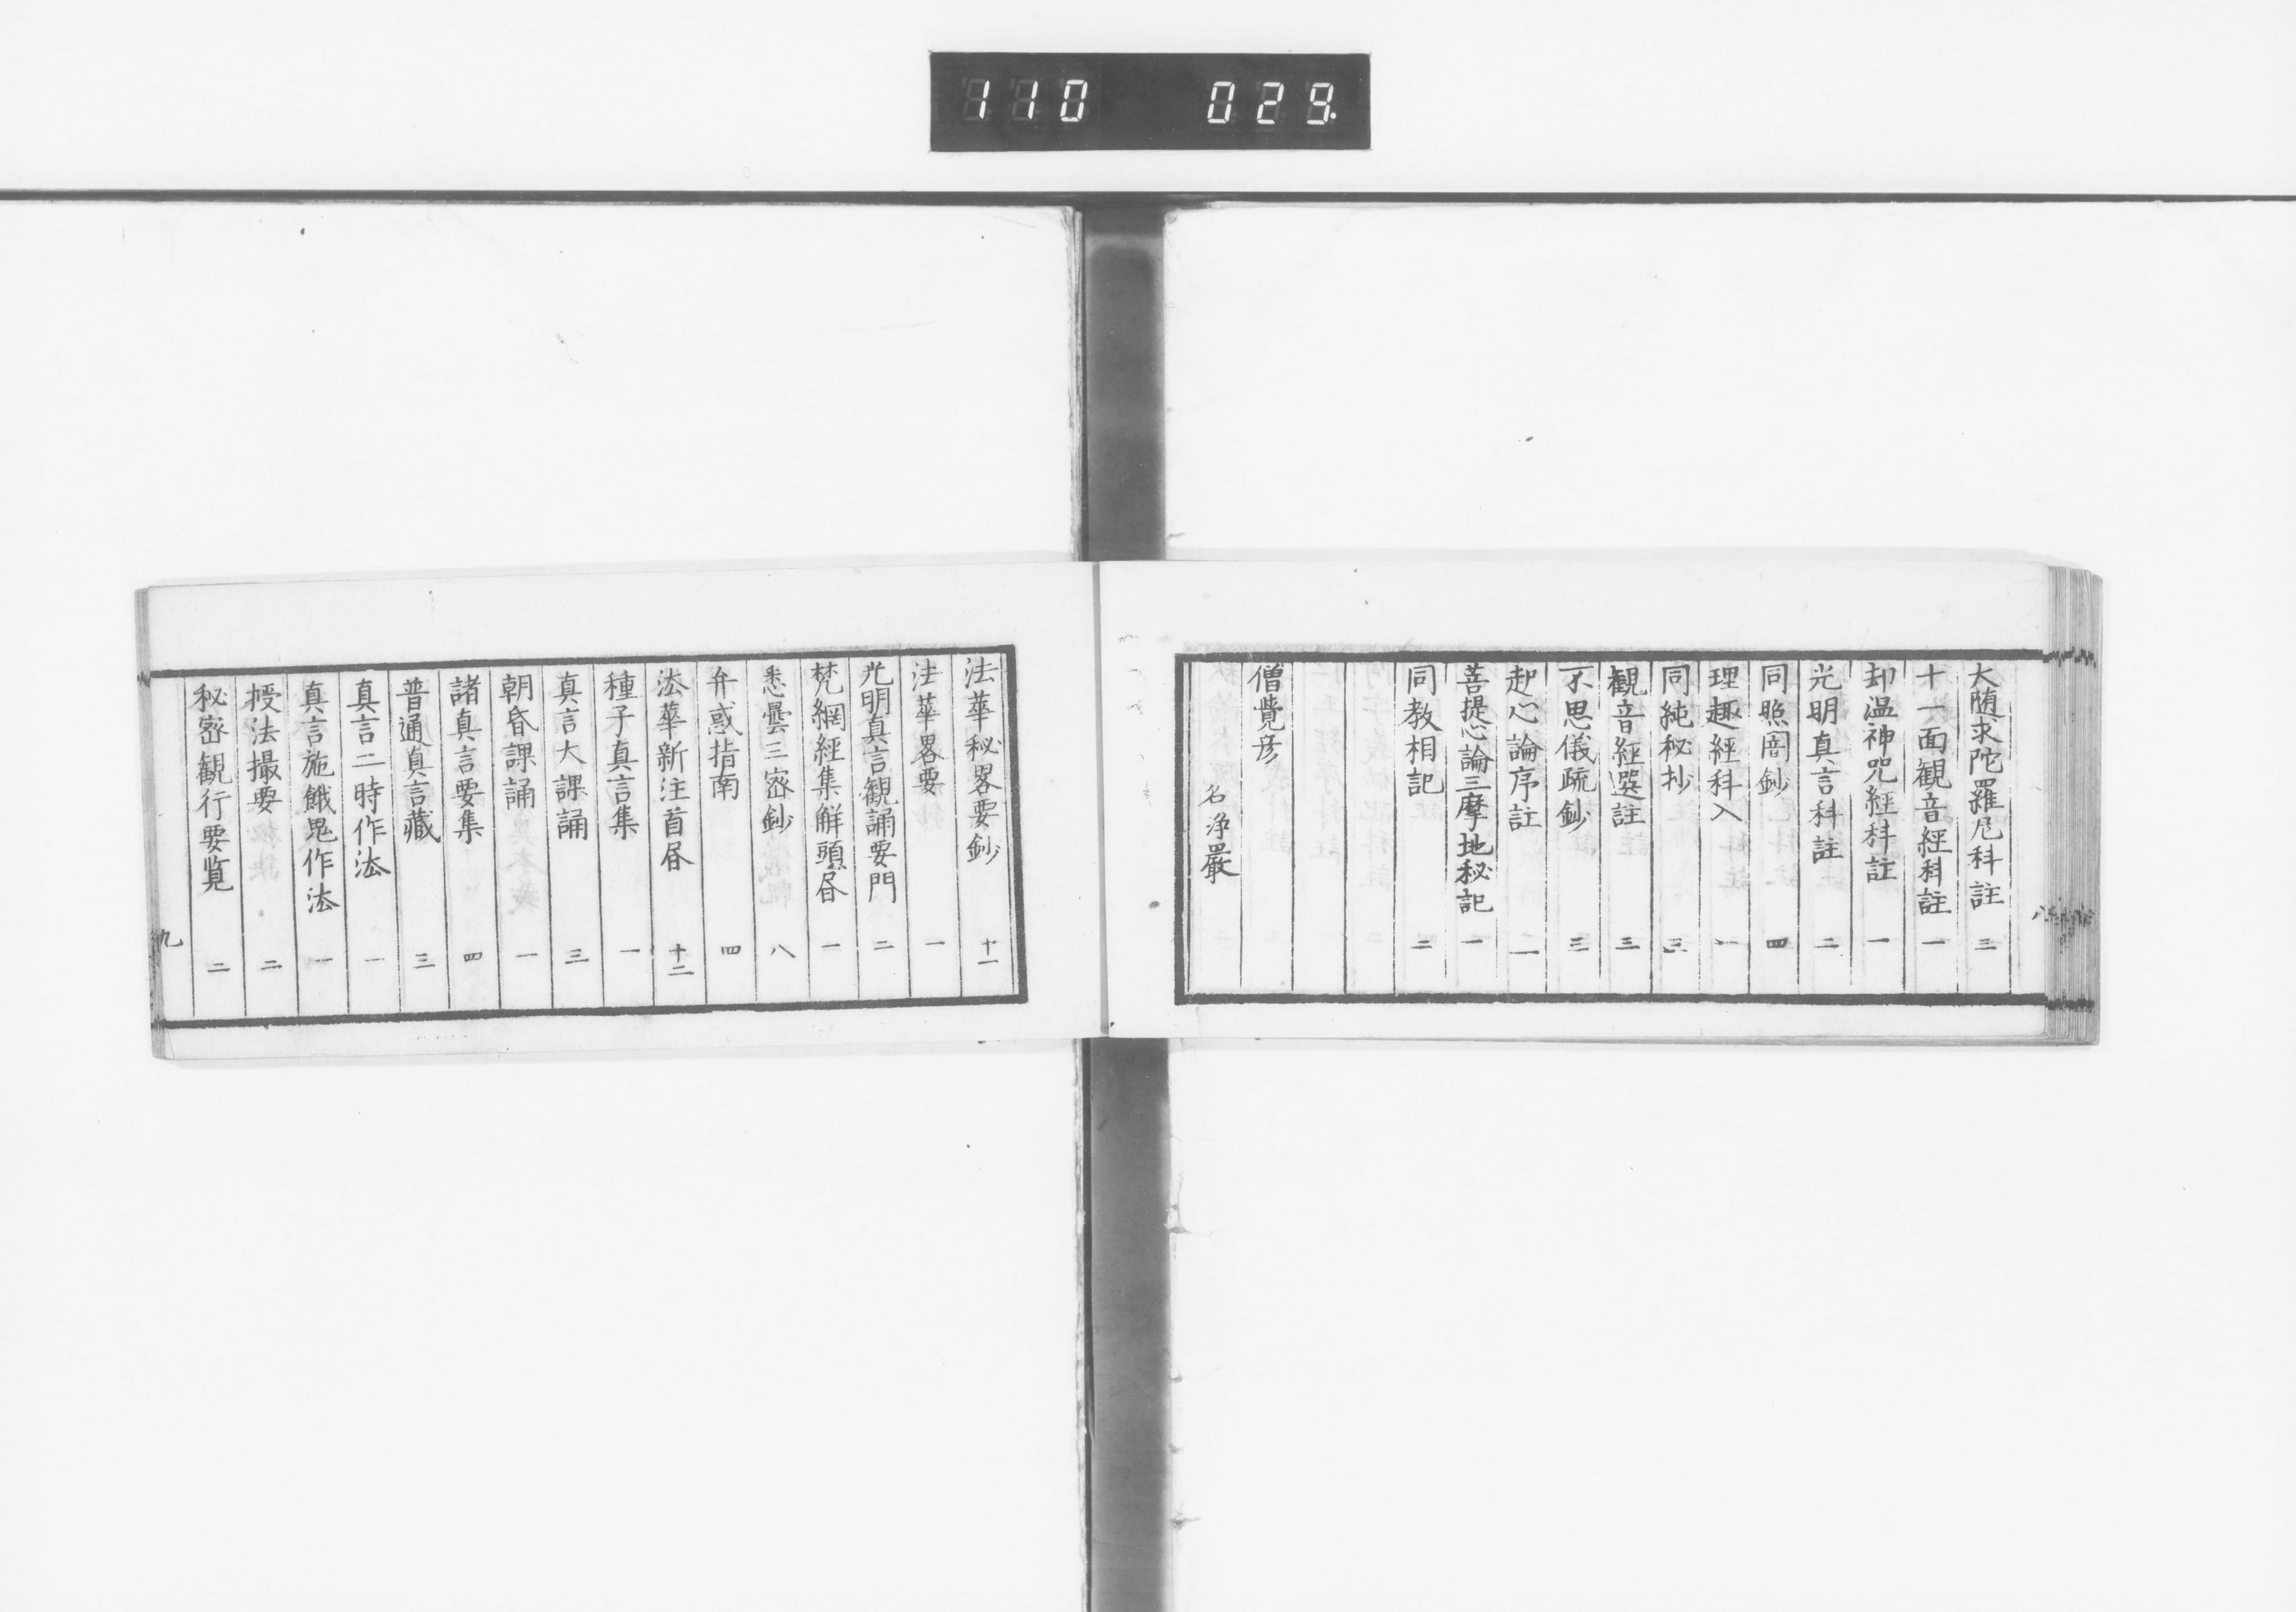 110 029.
大随求陀羅尼科註 三
十一面観音經科註 一
却温神咒經科註 一
光明真言科註 二
同照闇鈔 四
理趣經科入 一
同純秘抄 三
観音經選註 三
不思儀疏鈔 三
起心論序註 二
菩提心論三摩地秘記 一
同教相記 二
僧覺彦
名浄嚴
八
法華秘畧要鈔 十一
法華畧要 一
光明真言観誦要門 二
梵網經集解頭昏 一
悉曇三密鈔 八
弁惑指南 四
法華新注首昏 十二
種子真言集 一
真言大課誦 三
朝昏課誦 一
諸真言要集 四
普通真言藏 三
真言二時作法 一
真言施餓鬼作法 一
授法撮要 二
秘密観行要覧 二
九